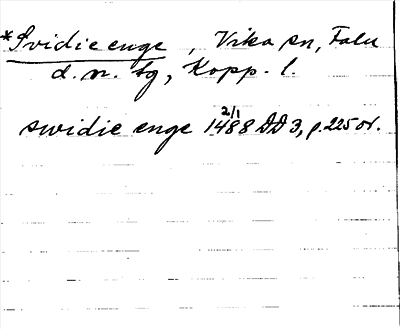 *Svidie enge, Vika sn, Falu
d. n. tg, Kopp. l.
2/1
swidie enge 1488 DD 3, p. 225 or.